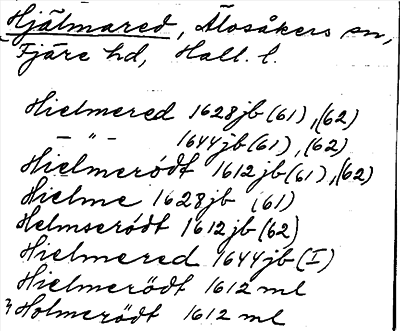 Hjälmared, Älvsåkers sn,
Fjäre hd, Hall. l.
Hielmered 1628 jb (61), (62)
— " — 1644 jb (61), (62)
Hielmerödt 1612 jb (61), (62)
Hielme 1628 jb (61)
Helmserödt 1612 jb (62)
Hielmered 1644 jb (I)
Hielmerödt 1612 ml
Holmerödt 1612 ml